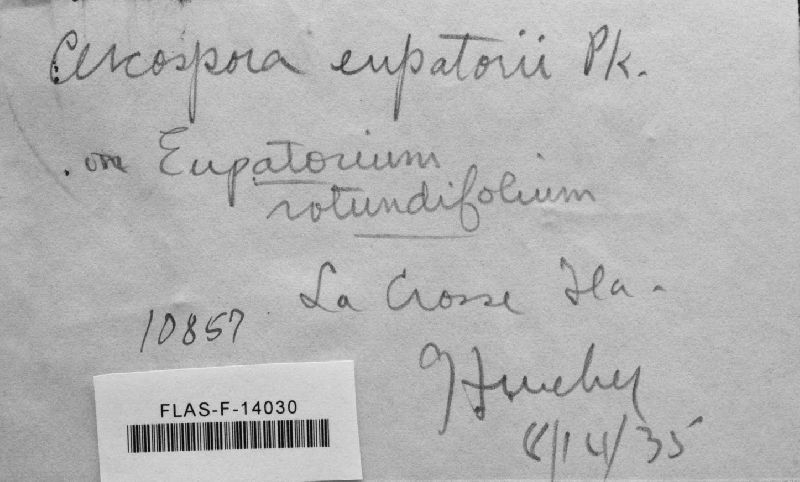 Cercospora eupatorii Pk.
on Eupatorium
rotundifolium
La Crosse Fla.
10857
FLAS-F-14030
8/14/35